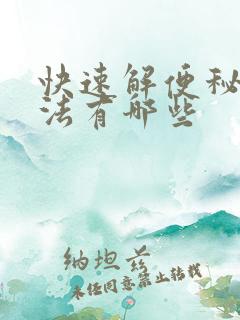 快速解便秘
法有哪些
纳坦兹
未经同意禁止转载